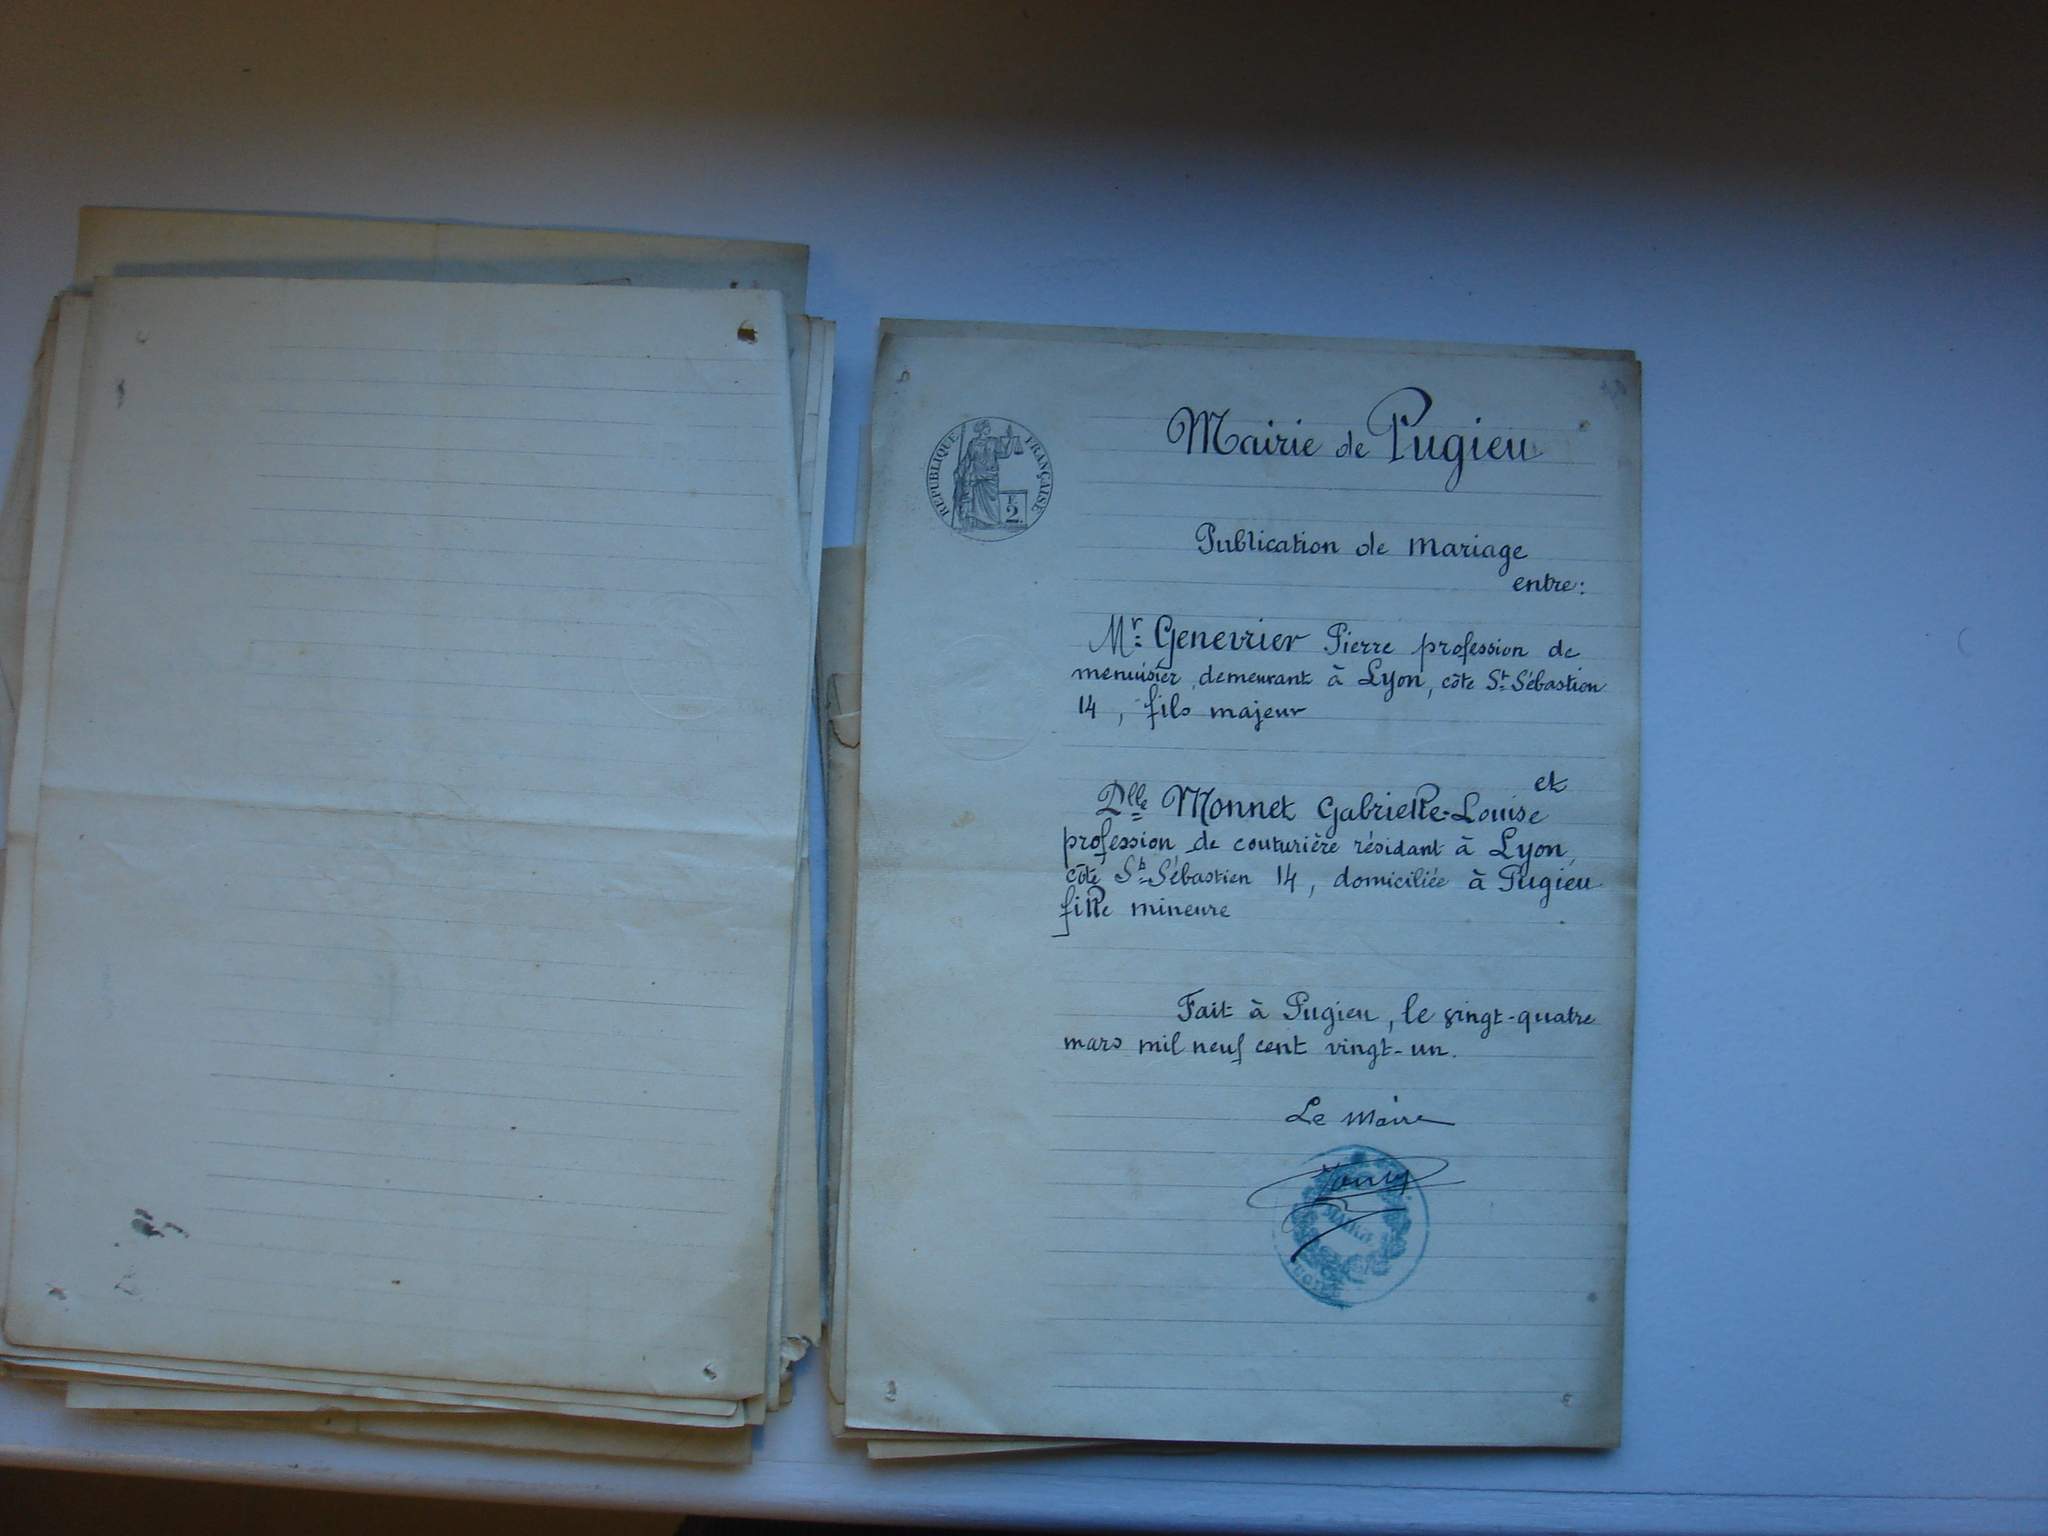 RÉPUBLIQUE FRANÇAISE
F.
2.
Mairie de Pugieu
Publication de mariage
entre:
Mr. Genevrier Pierre profession de
menuisier, demeurant à Lyon, côte St-Sébastien
14, fils majeur
et
Dlle Monnet Gabrielle-Louise
profession de couturière résidant à Lyon,
côte St-Sébastien 14, domiciliée à Pugieu
fille mineure
Fait à Pugieu, le vingt-quatre
mars mil neuf cent vingt-un.
Le Maire